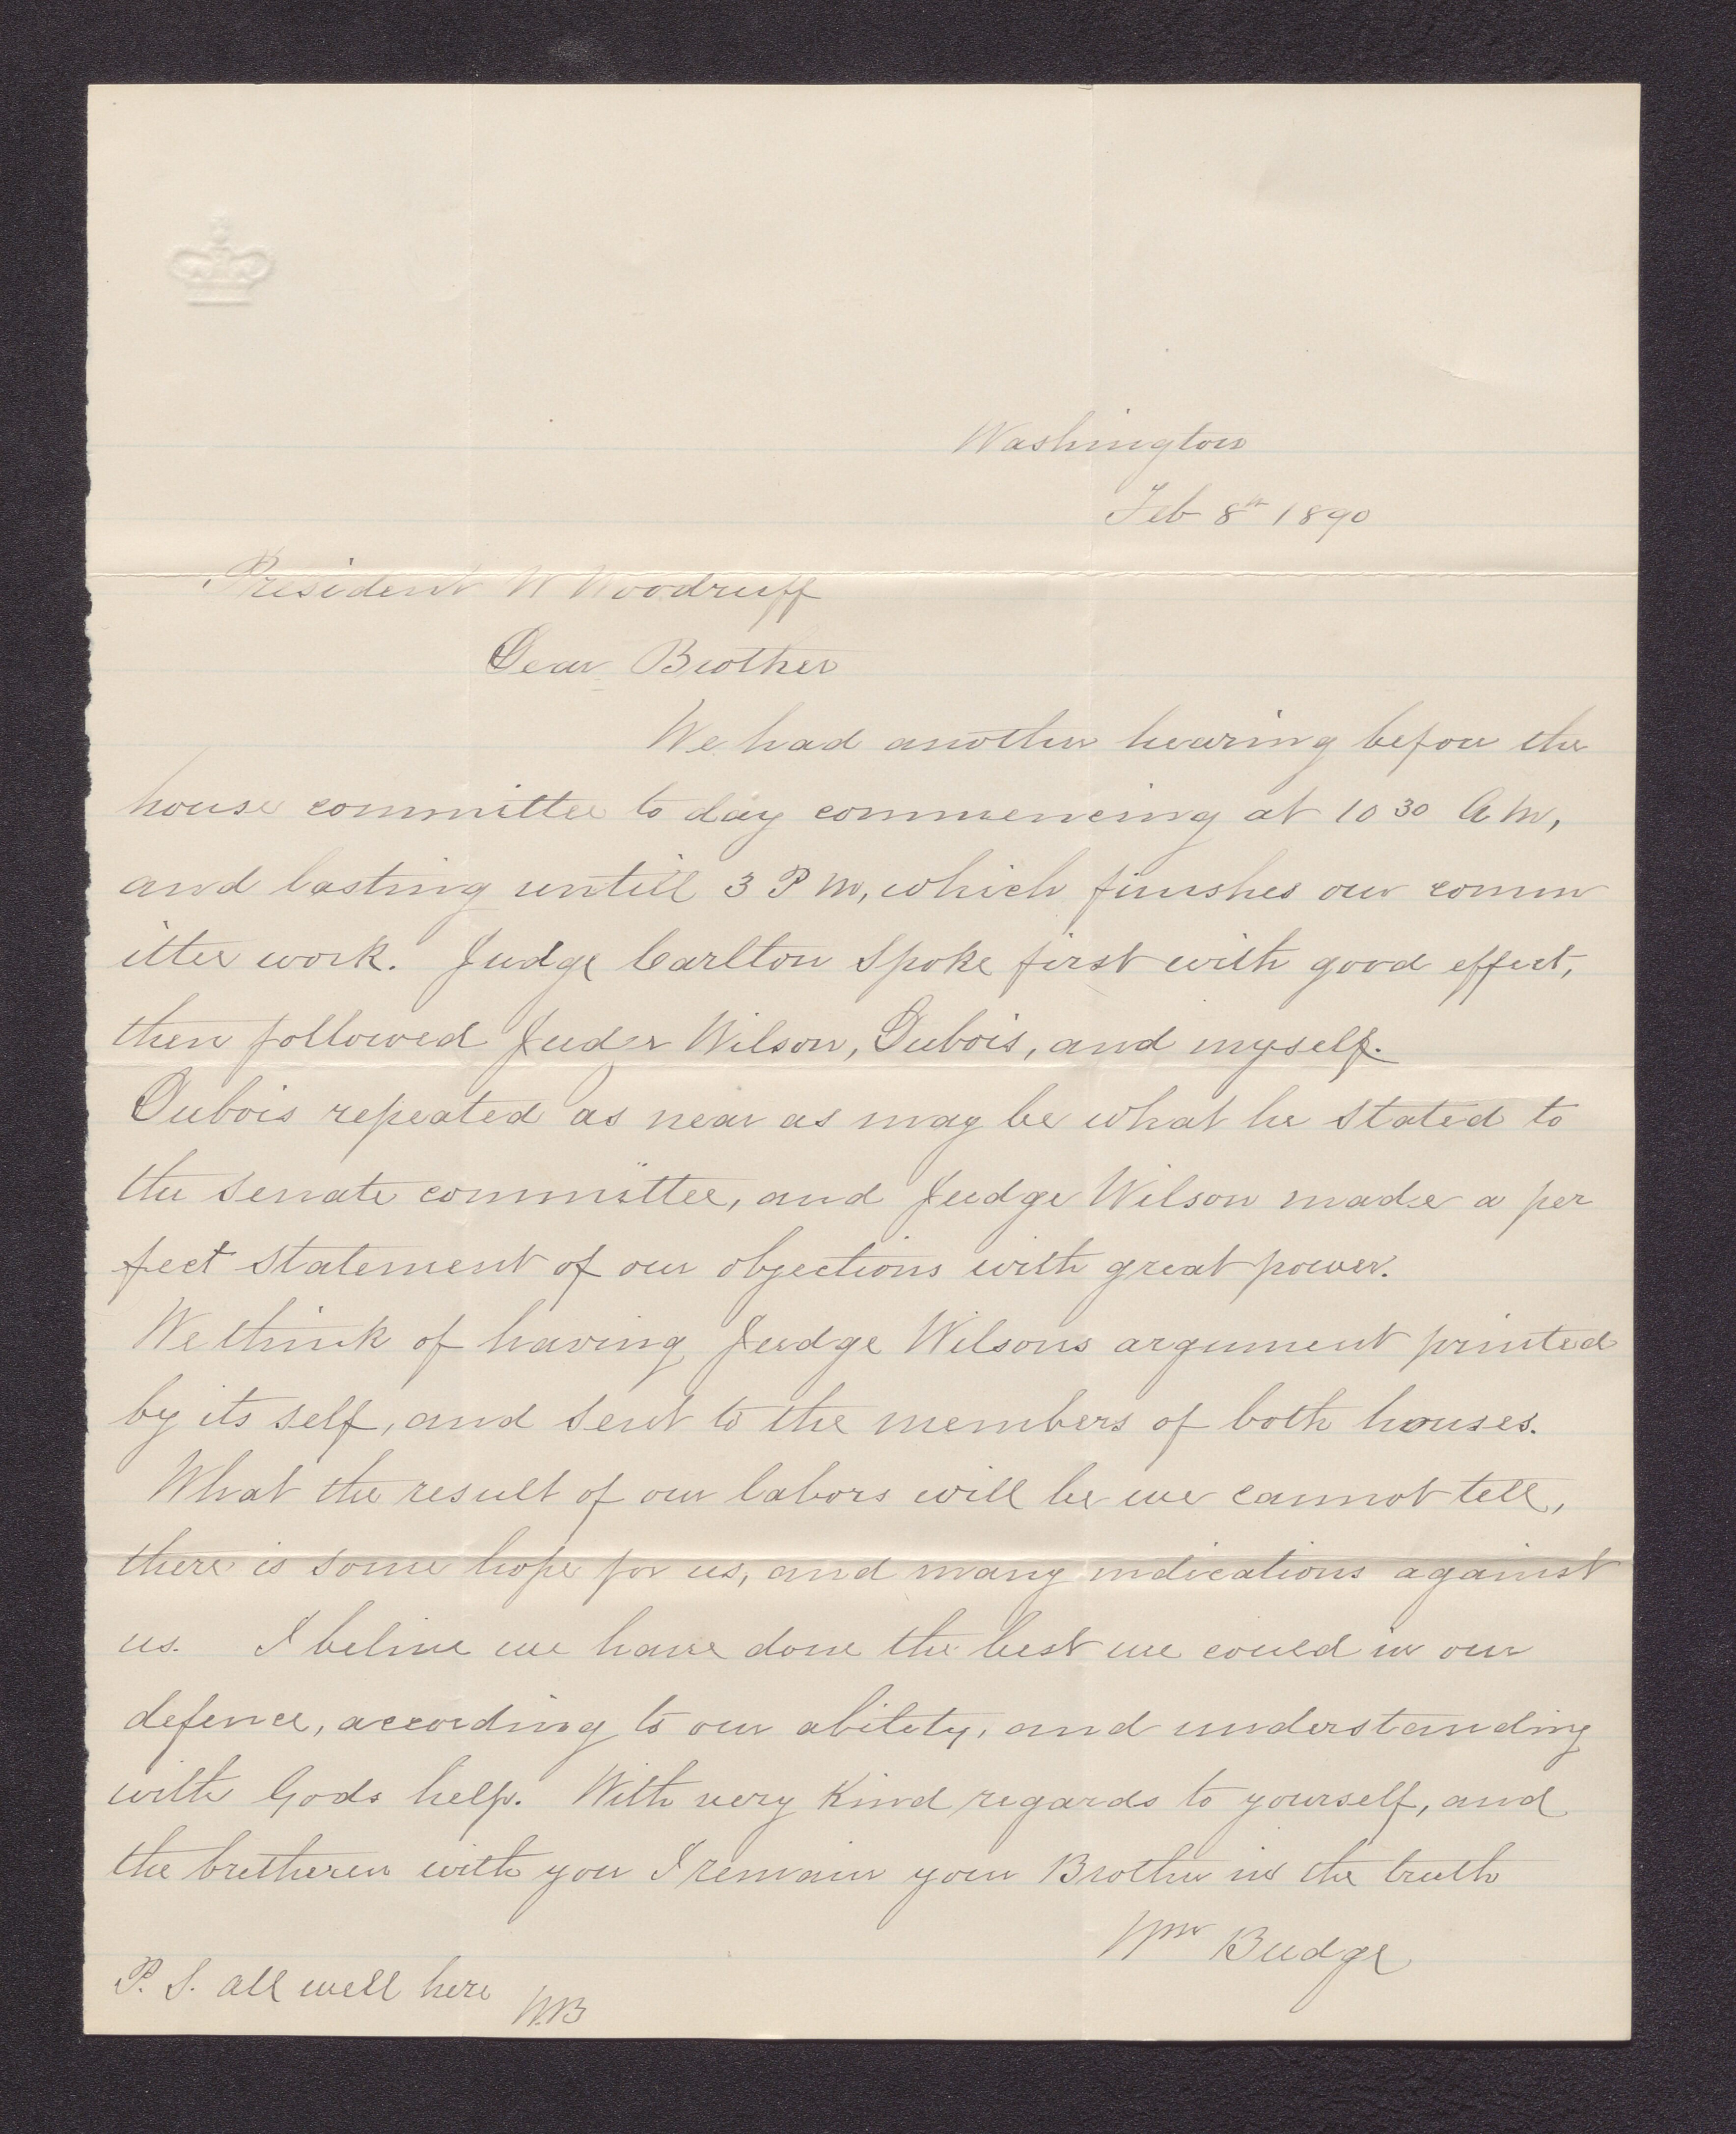 Washington
Feb 8th 1890
President W Woodruff
Dear Brother
We had another hearing before the
house committee to day commencing at 10 30 A M,
and lasting untill 3 P M, which finishes our comm
ittee work. Judge Carlton spoke first with good effect,
then followed Judge Wilson, Dubois, and myself.
Dubois repeated as near as may be what he stated to
the senate committee, and Judge Wilson made a per
fect statement of our objections with great power.
We think of having Judge Wilsons argument printed
by its self, and sent to the members of both houses.
What the result of our labors will be we cannot tell,
there is some hope for us, and many indications against
us. I belive we have done the best we could in our
defence, according to our abilety, and understanding
with Gods help. With very kind regards to yourself, and
the bretheren with you I remain your Brother in the truth
Wm Budge
P. S. all well here
W.B